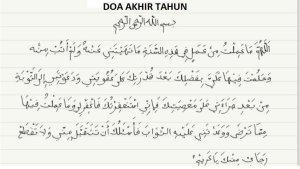 DOA AKHIR TAHUN
بسم الله الرحمن الرحيم
اللهم ما عملت من عمل في هذه السنة ما نهيتني عنه ولم أتب منه
وحلمت فيها علي بفضلك بعد قدرتك على عقوبتي ودعوتني إلى التوبة
من بعد جراءتي على معصيتك فإني استغفرتك فاغفرلي وما عملت فيها
مما ترضى ووعدتني عليه الثواب فأسئلك أن تتقبل مني ولا تقطع
رجائي منك يا كريم